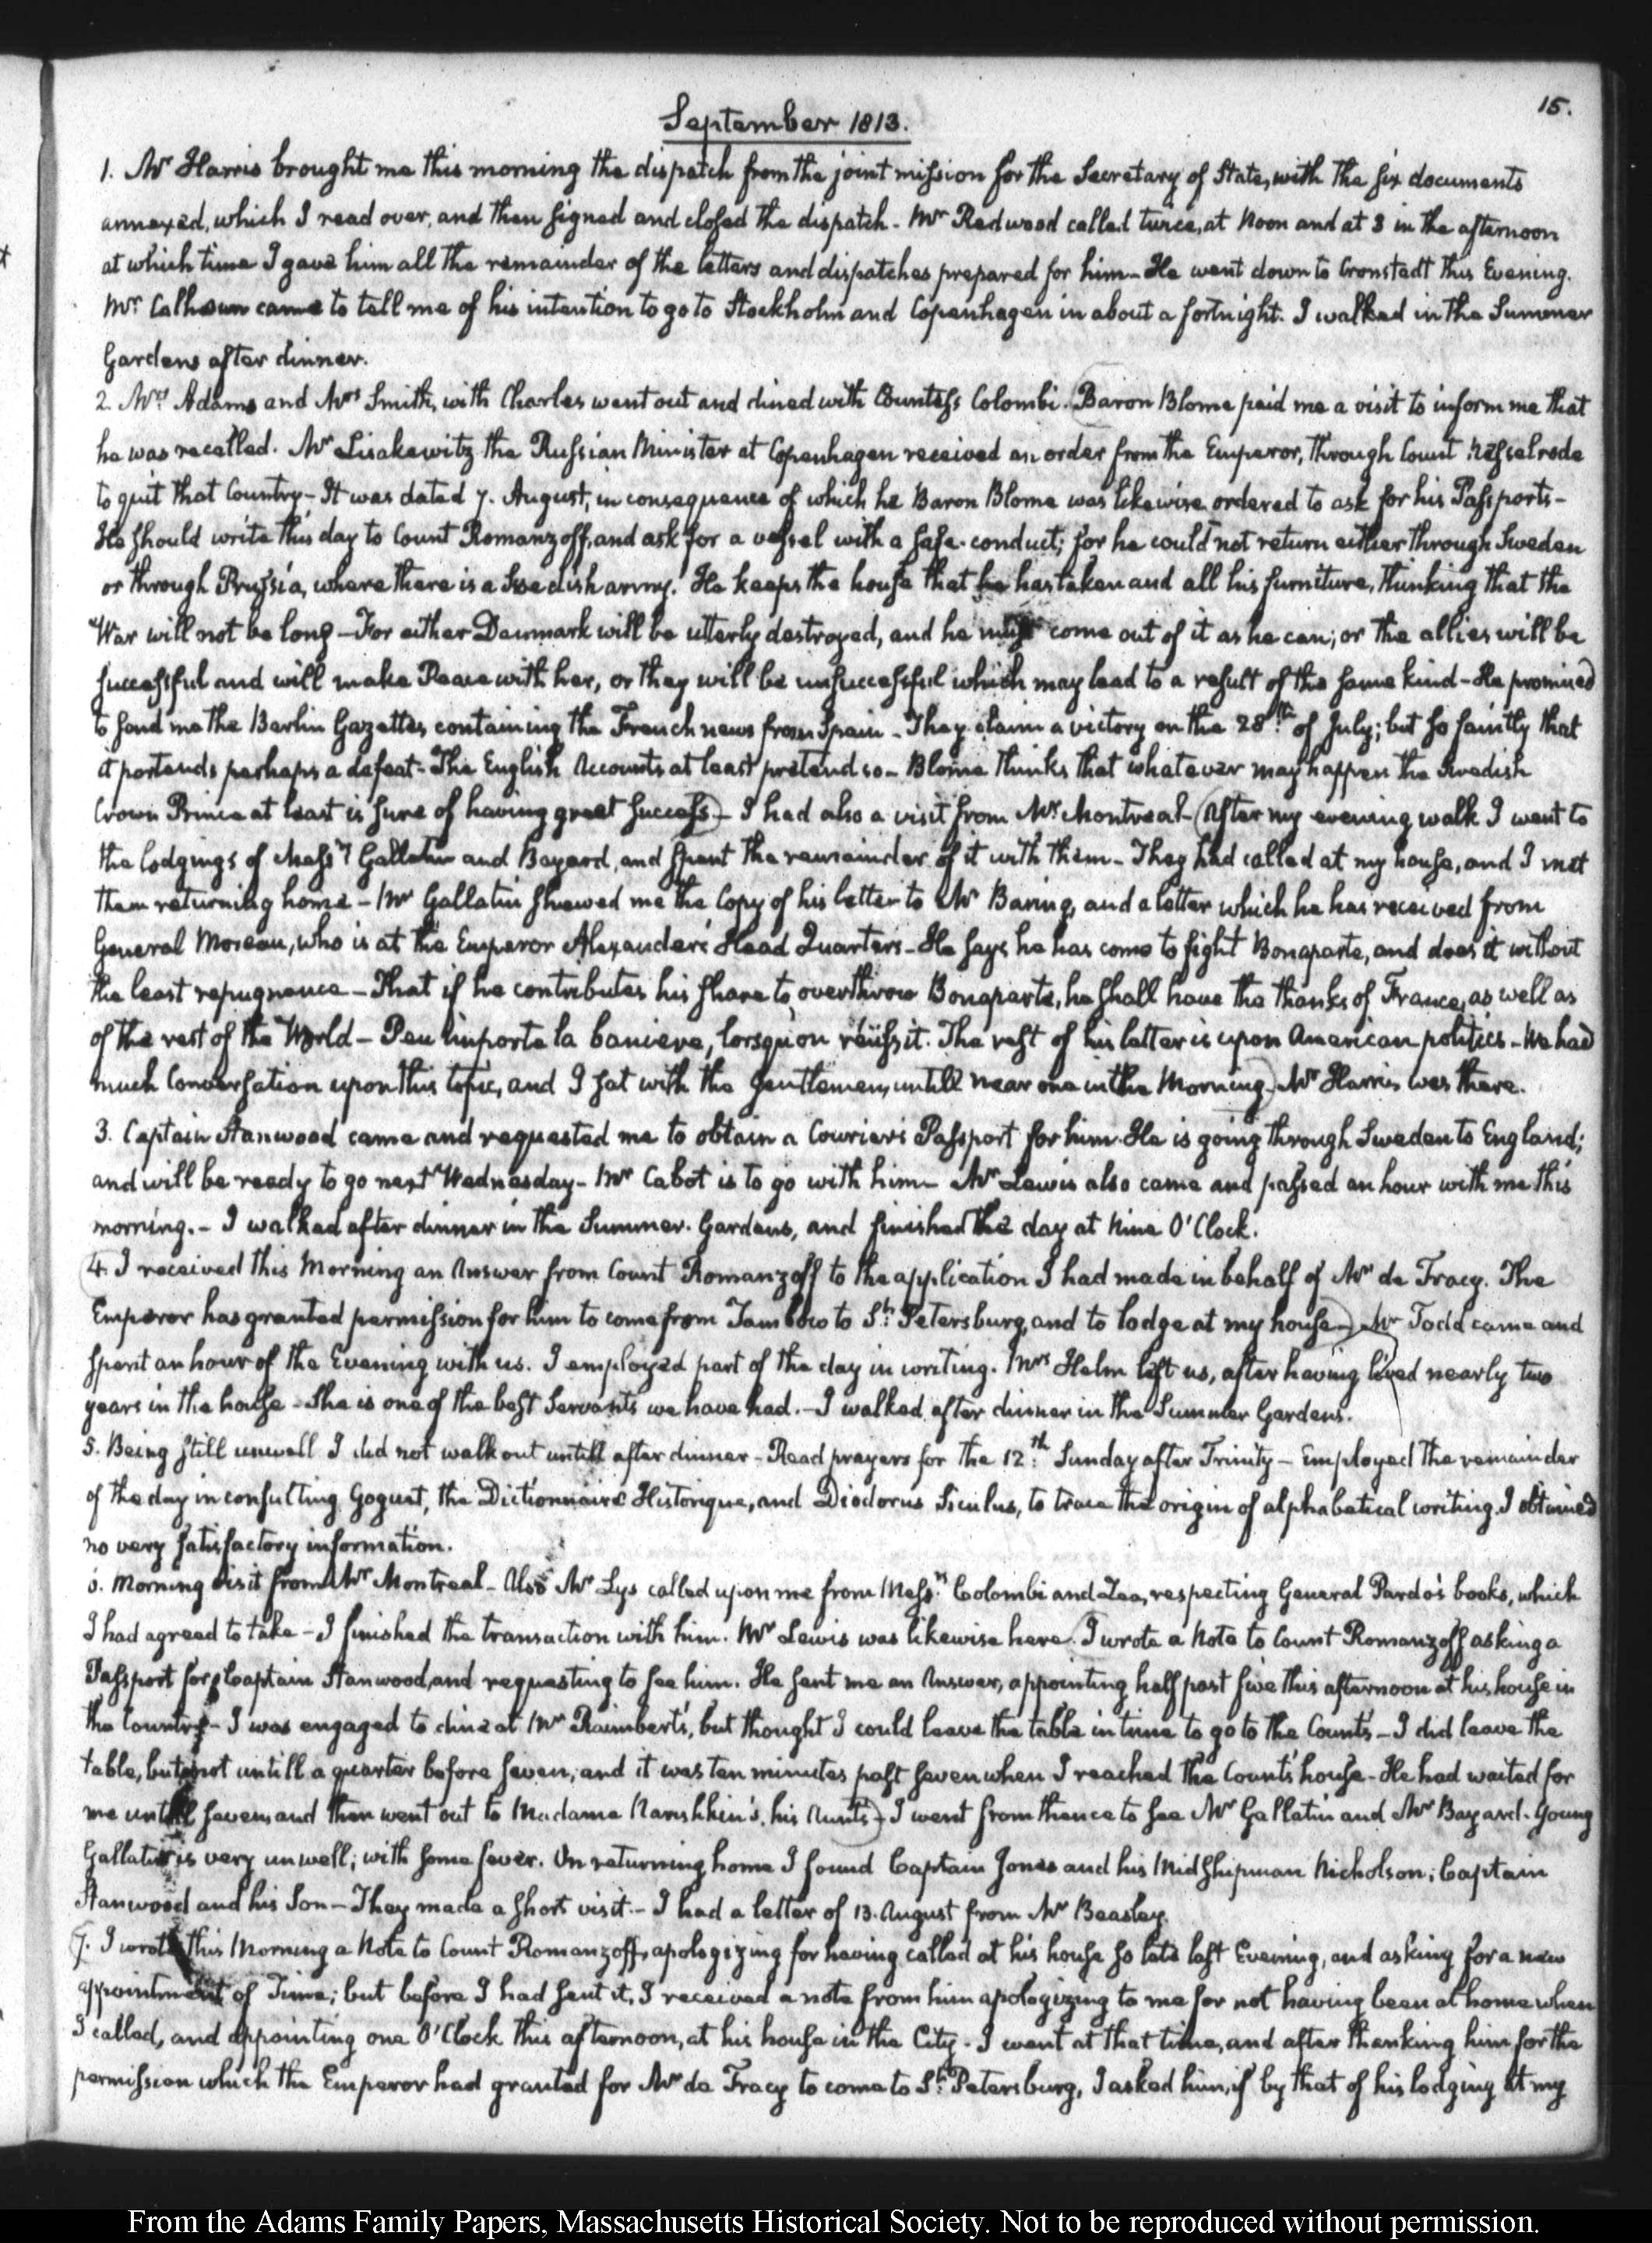 15.
September 1813.
1. Mr Harris brought me this morning the dispatch from the joint mission for the Secretary of State, with the six documents
annexed, which I read over, and then signed and closed the dispatch - Mr Redwood called twice, at Noon and at 3 in the afternoon
at which time I gave him all the remainder of the letters and dispatches prepared for him - He went down to Cronstadt this Evening.
Mr Calhoun came to tell me of his intention to go to Stockholm and Copenhagen in about a fortnight. I walked in the Summer
Gardens after dinner.
2. Mrs Adams and Mrs Smith, with Charles went out and dined with Countess Colombi. Baron Blome paid me a visit to inform me that
he was recalled. Mr Lisakewitz the Russian Minister at Copenhagen received an order from the Emperor, through Count Nesselrode
to quit that Country - It was dated 7. August, in consequence of which he Baron Blome was likewise ordered to ask for his Passports -
He should write this day to Count Romanzoff, and ask for a vessel with a safe-conduct; for he could not return either through Sweden
or through Prussia, where there is a Swedish army. He keeps the house that he has taken and all his furniture, thinking that the
War will not be long - For either Denmark will be utterly destroyed, and he must come out of it as he can; or the allies will be
successful and will make Peace with her, or they will be unsuccessful which may lead to a result of the same kind - He promised
to send me the Berlin Gazettes, containing the French news from Spain - They claim a victory on the 28th of July; but so faintly that
it portends perhaps a defeat - The English Accounts at least pretend so - Blome thinks that whatever may happen the Swedish
Crown Prince at least is sure of having great success - I had also a visit from Mr Montreal - After my evening walk I went to
the lodgings of Messrs Gallatin and Bayard, and spent the remainder of it with them - They had called at my house, and I met
them returning home - Mr Gallatin shewed me the Copy of his letter to Mr Baring, and a letter which he has received from
General Moreau, who is at the Emperor Alexander's Head Quarters - He says he has come to fight Bonaparte, and does it without
the least repugnance - That if he contributes his share to overthrow Bonaparte, he shall have the thanks of France, as well as
of the rest of the World - Peu importe la baniere, lorsqu'on réüssit. The rest of his letter is upon American politics - We had
much Conversation upon this topic, and I sat with the Gentlemen, untill near one in the Morning - Mr Harris was there.
3. Captain Stanwood came and requested me to obtain a Courier's Passport for him. He is going through Sweden to England;
and will be ready to go next Wednesday - Mr Cabot is to go with him - Mr Lewis also came and passed an hour with me this
morning. - I walked after dinner in the Summer Gardens, and finished the day at Nine O'Clock.
4. I received this Morning an Answer from Count Romanzoff to the application I had made in behalf of Mr de Tracy. The
Emperor has granted permission for him to come from Tambow to St Petersburg, and to lodge at my house - Mr Todd came and
spent an hour of the Evening with us. I employed part of the day in writing. Mrs Helm left us, after having lived nearly two
years in the house - She is one of the best Servants we have had. - I walked after dinner in the Summer Gardens.
5. Being still unwell I did not walk out untill after dinner - Read prayers for the 12th Sunday after Trinity - Employed the remainder
of the day in consulting Goguet, the Dictionnaire Historique, and Diodorus Siculus, to trace the origin of alphabetical writing. I obtained
no very satisfactory information.
6. Morning visit from Mr Montreal - Also Mr Lys called upon me from Messrs Colombi and Zea, respecting General Pardo's books, which
I had agreed to take - I finished the transaction with him. Mr Lewis was likewise here. I wrote a Note to Count Romanzoff asking a
Passport for Captain Stanwood, and requesting to see him. He sent me an Answer, appointing half past five this afternoon at his house in
the Country - I was engaged to dine at Mr Raimbert's, but thought I could leave the table in time to go to the Count's - I did leave the
table, but not untill a quarter before seven, and it was ten minutes past seven when I reached the Count's house - He had waited for
me untill seven, and then went out to Madame Narishkin's, his Aunt's - I went from thence to see Mr Gallatin and Mr Bayard. Young
Gallatin is very unwell; with some fever. On returning home I found Captain Jones and his Midshipman Nicholson; Captain
Stanwood and his Son - They made a short visit. - I had a letter of 13. August from Mr Beasley.
7. I wrote this Morning a Note to Count Romanzoff, apologizing for having called at his house so late last Evening, and asking for a new
appointment of Time; but before I had sent it, I received a note from him apologizing to me for not having been at home when
I called, and appointing one O'Clock this afternoon, at his house in the City. I went at that time, and after thanking him for the
permission which the Emperor had granted for Mr de Tracy to come to St Petersburg, I asked him, if by that of his lodging at my
From the Adams Family Papers, Massachusetts Historical Society. Not to be reproduced without permission.